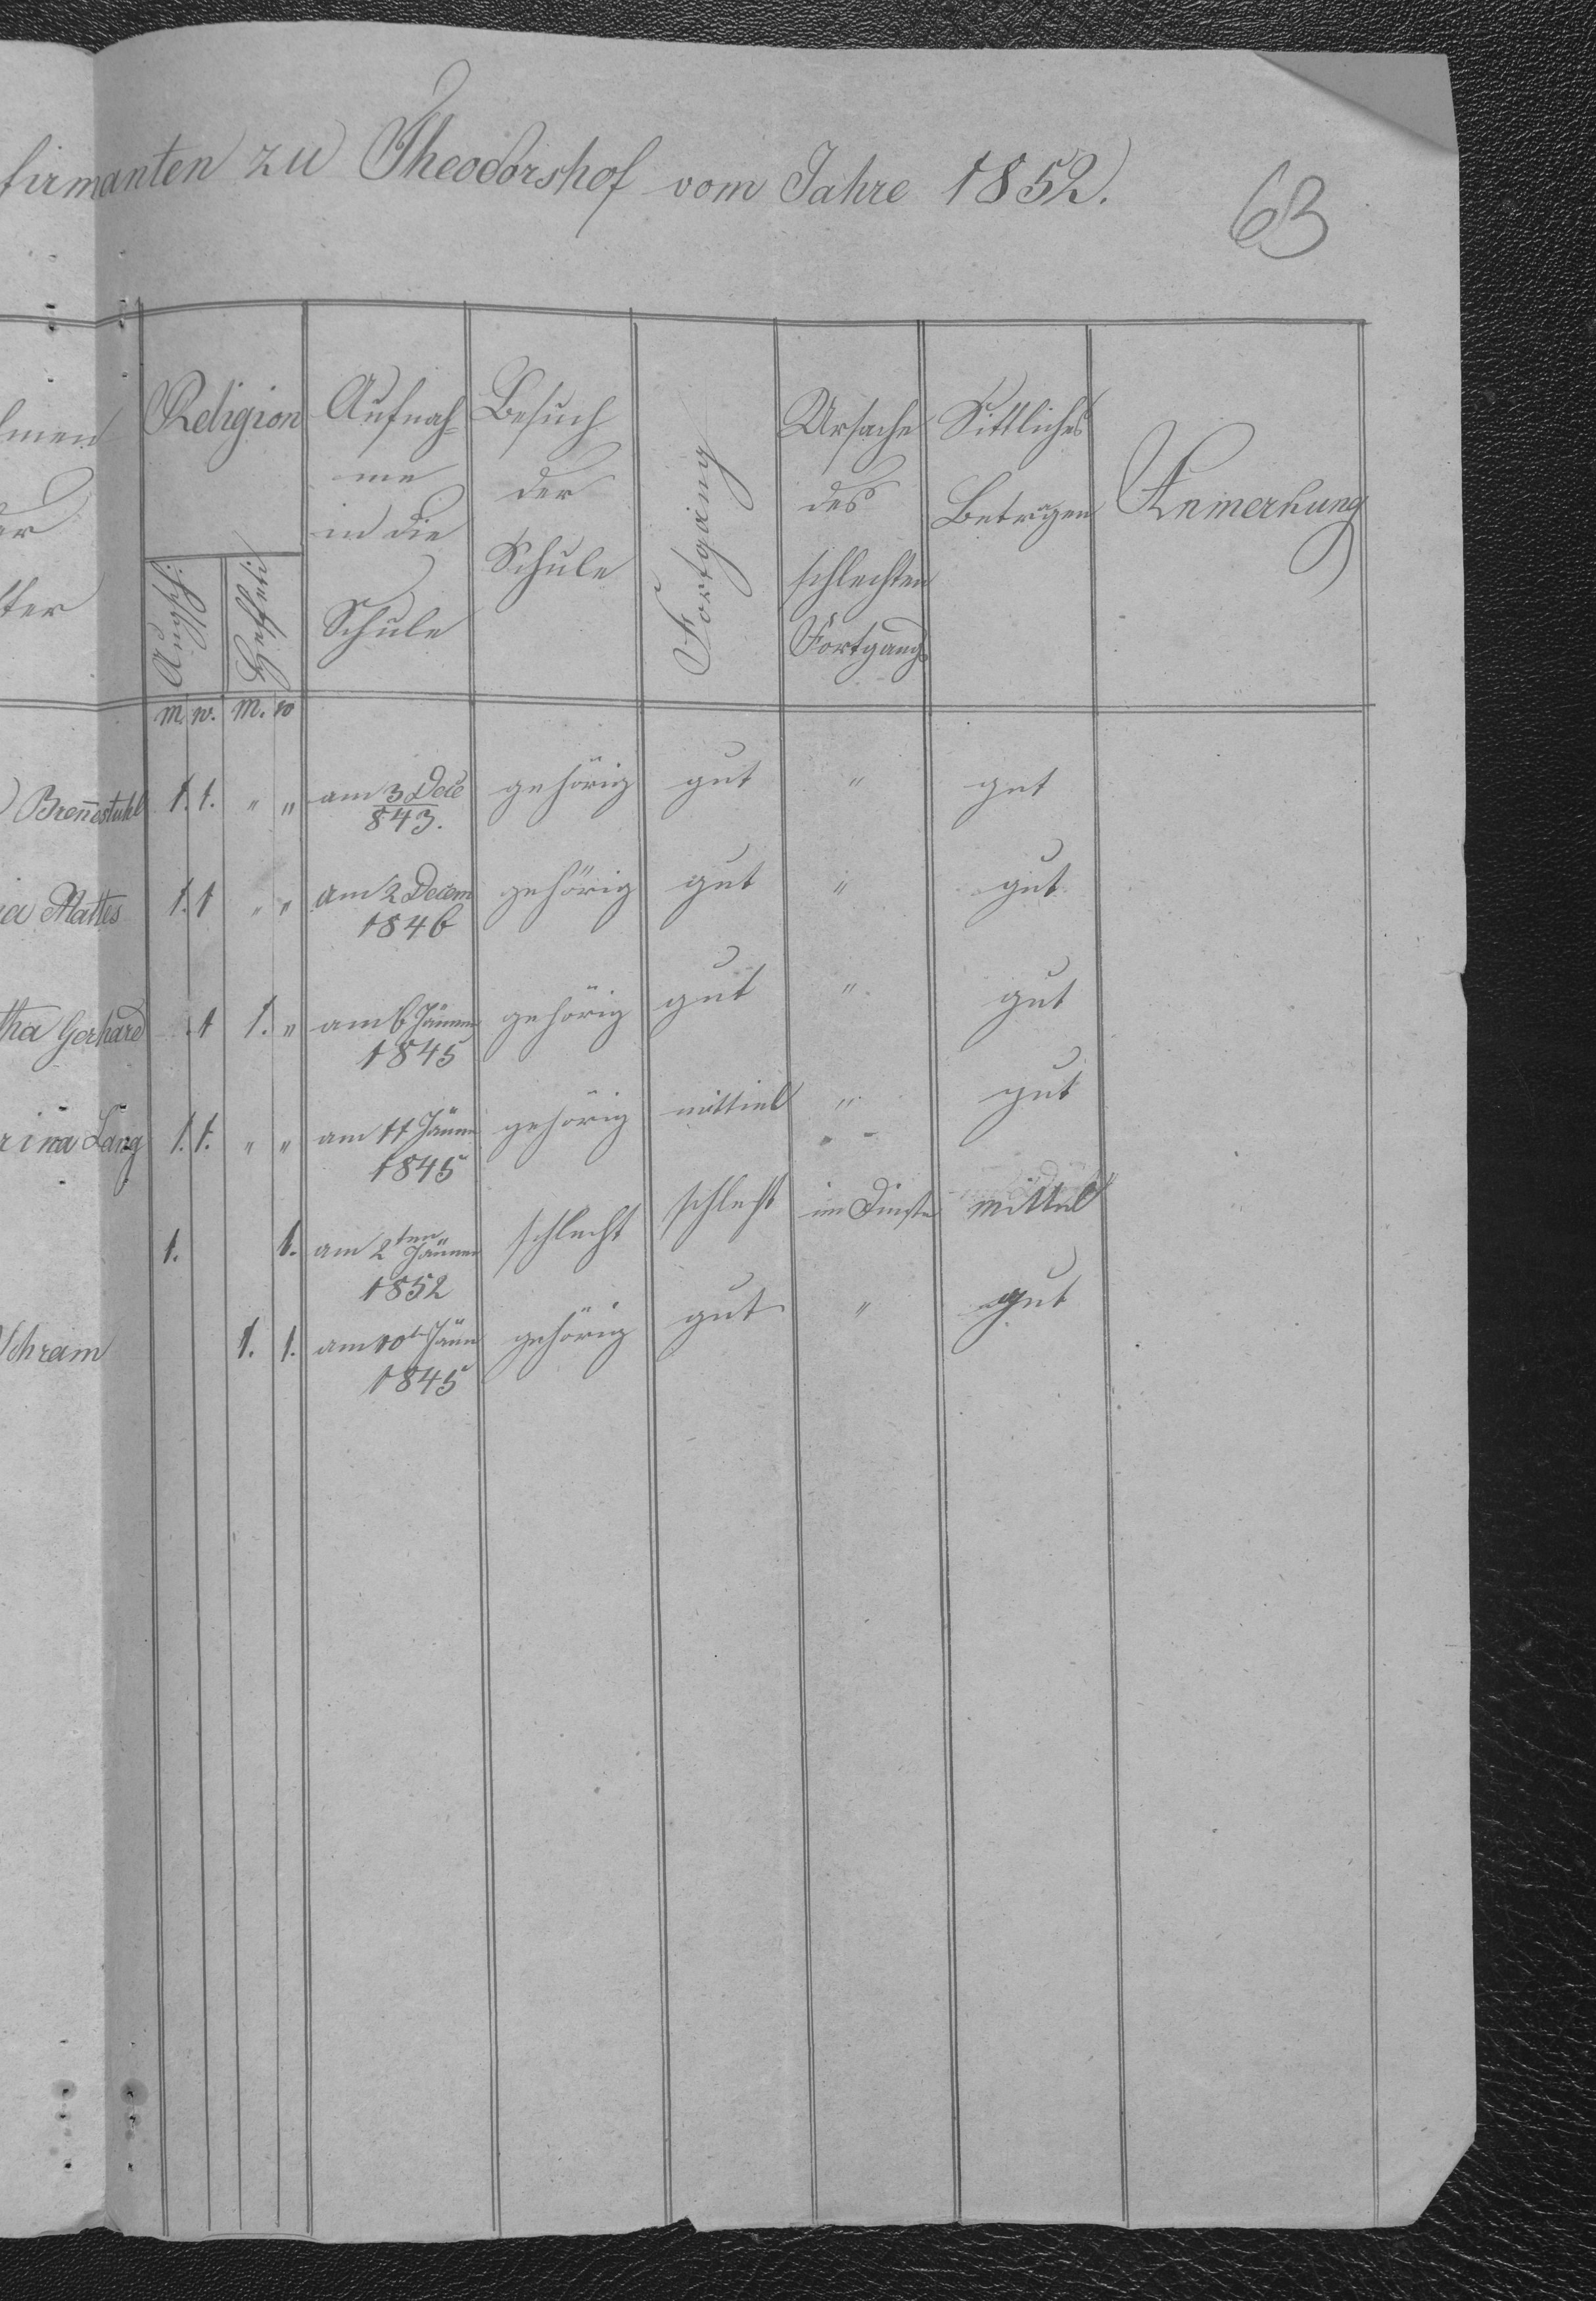 firmanten zu Theodorshof vom Jahre 1852.
63
Religion
Augsb.
m. w.
Helfeti
m. w
Aufnah-
me
in die
Schule
Besuch
der
Schule
Fortgang
Ursache
des
schlechten
Fortgangs
Sittliches
Betragen
Anmerkung
men
er
ter
Brennestuhl 1. 1. " " am 3 Dece gehörig gut " gut
843.
ia Mattes 1. 1 " " am 2 Decem gehörig gut " gut
1846
tha Gerhard 1 1. " am 6 Jänner gehörig gut " gut
1845
rina Lang 1. 1. " " am 11 Jänner gehörig mittel " gut
1845
1. 1. am 2ten Jänner schlecht schlecht im Dinste mittel
1852
Schram 1. 1. am 10t Jänn gehörig gut " gut
1845